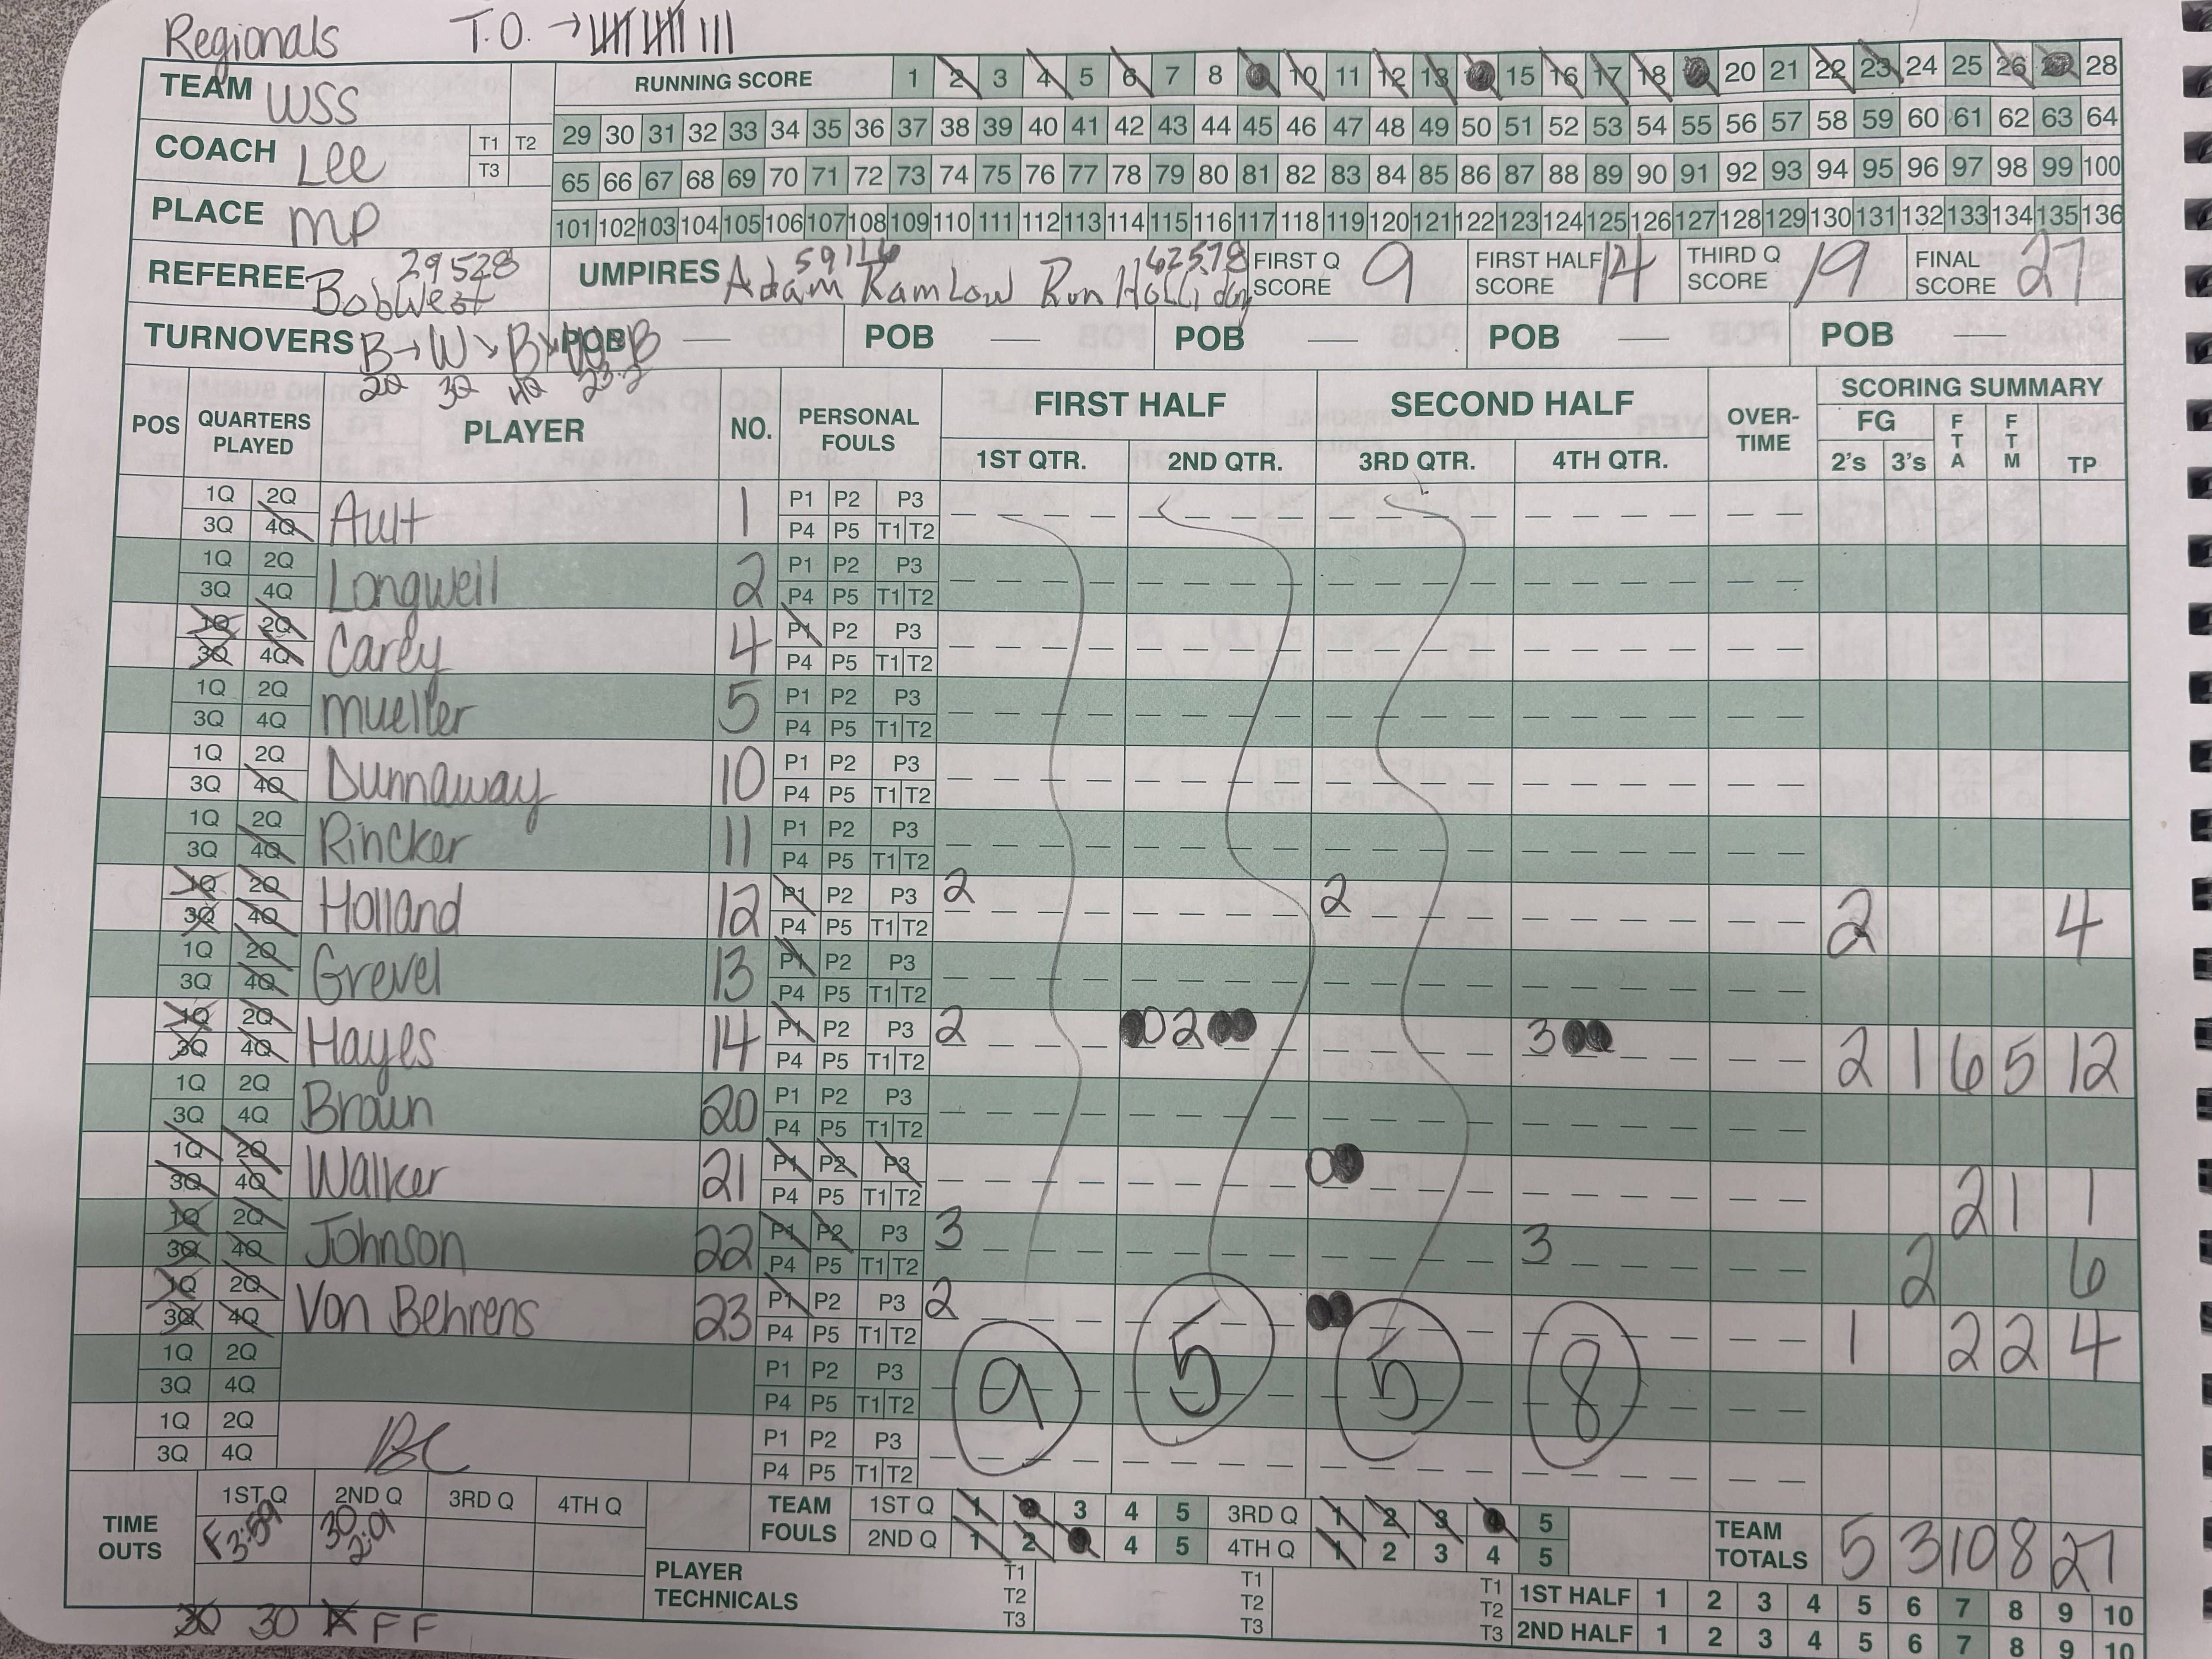 Regionals T.O. → |||| |||| |||
TEAM WSS RUNNING SCORE 1 2 3 4 5 6 7 8 9 10 11 12 13 14 15 16 17 18 19 20 21 22 23 24 25 26 27 28
29 30 31 32 33 34 35 36 37 38 39 40 41 42 43 44 45 46 47 48 49 50 51 52 53 54 55 56 57 58 59 60 61 62 63 64
COACH Lee T1 T2 T3
65 66 67 68 69 70 71 72 73 74 75 76 77 78 79 80 81 82 83 84 85 86 87 88 89 90 91 92 93 94 95 96 97 98 99 100
PLACE MP
101 102 103 104 105 106 107 108 109 110 111 112 113 114 115 116 117 118 119 120 121 122 123 124 125 126 127 128 129 130 131 132 133 134 135 136
REFEREE Bob West 29528 UMPIRES Adam Ramlow 59116 Ron Holliday 62578 FIRST Q SCORE 9 FIRST HALF SCORE 14 THIRD Q SCORE 19 FINAL SCORE 27
TURNOVERS B → W → B → W → B POB — POB — POB — POB — POB —
2Q 3Q 4Q 23.2
POS QUARTERS PLAYED PLAYER NO. PERSONAL FOULS FIRST HALF SECOND HALF OVER-TIME SCORING SUMMARY
1ST QTR. 2ND QTR. 3RD QTR. 4TH QTR. FG 2's 3's FTA FTM TP
1Q 2Q Ault 1 P1 P2 P3
3Q 4Q P4 P5 T1 T2
1Q 2Q Longwell 2 P1 P2 P3
3Q 4Q P4 P5 T1 T2
1Q 2Q Carey 4 P1 P2 P3
3Q 4Q P4 P5 T1 T2
1Q 2Q Mueller 5 P1 P2 P3
3Q 4Q P4 P5 T1 T2
1Q 2Q Dunnaway 10 P1 P2 P3
3Q 4Q P4 P5 T1 T2
1Q 2Q Rincker 11 P1 P2 P3
3Q 4Q P4 P5 T1 T2
1Q 2Q Holland 12 P1 P2 P3 2 2 2 4
3Q 4Q P4 P5 T1 T2
1Q 2Q Grevel 13 P1 P2 P3
3Q 4Q P4 P5 T1 T2
1Q 2Q Hayes 14 P1 P2 P3 2 ●O2●● 3●● 2 1 6 5 12
3Q 4Q P4 P5 T1 T2
1Q 2Q Braun 20 P1 P2 P3
3Q 4Q P4 P5 T1 T2
1Q 2Q Walker 21 P1 P2 P3 O● 2 1 1
3Q 4Q P4 P5 T1 T2
1Q 2Q Johnson 22 P1 P2 P3 3 3 2 6
3Q 4Q P4 P5 T1 T2
1Q 2Q Von Behrens 23 P1 P2 P3 2 ●● 1 2 2 4
3Q 4Q P4 P5 T1 T2
1Q 2Q P1 P2 P3 9 5 5 8
3Q 4Q P4 P5 T1 T2
1Q 2Q BC P1 P2 P3
3Q 4Q P4 P5 T1 T2
TIME OUTS 1ST Q 2ND Q 3RD Q 4TH Q
F 3:59 30 2:01
TEAM FOULS 1ST Q 1 2 3 4 5 3RD Q 1 2 3 4 5
2ND Q 1 2 3 4 5 4TH Q 1 2 3 4 5
TEAM TOTALS 5 3 10 8 27
PLAYER TECHNICALS T1 T2 T3 T1 T2 T3 T1 T2 T3
1ST HALF 1 2 3 4 5 6 7 8 9 10
2ND HALF 1 2 3 4 5 6 7 8 9 10
30 30 F F F